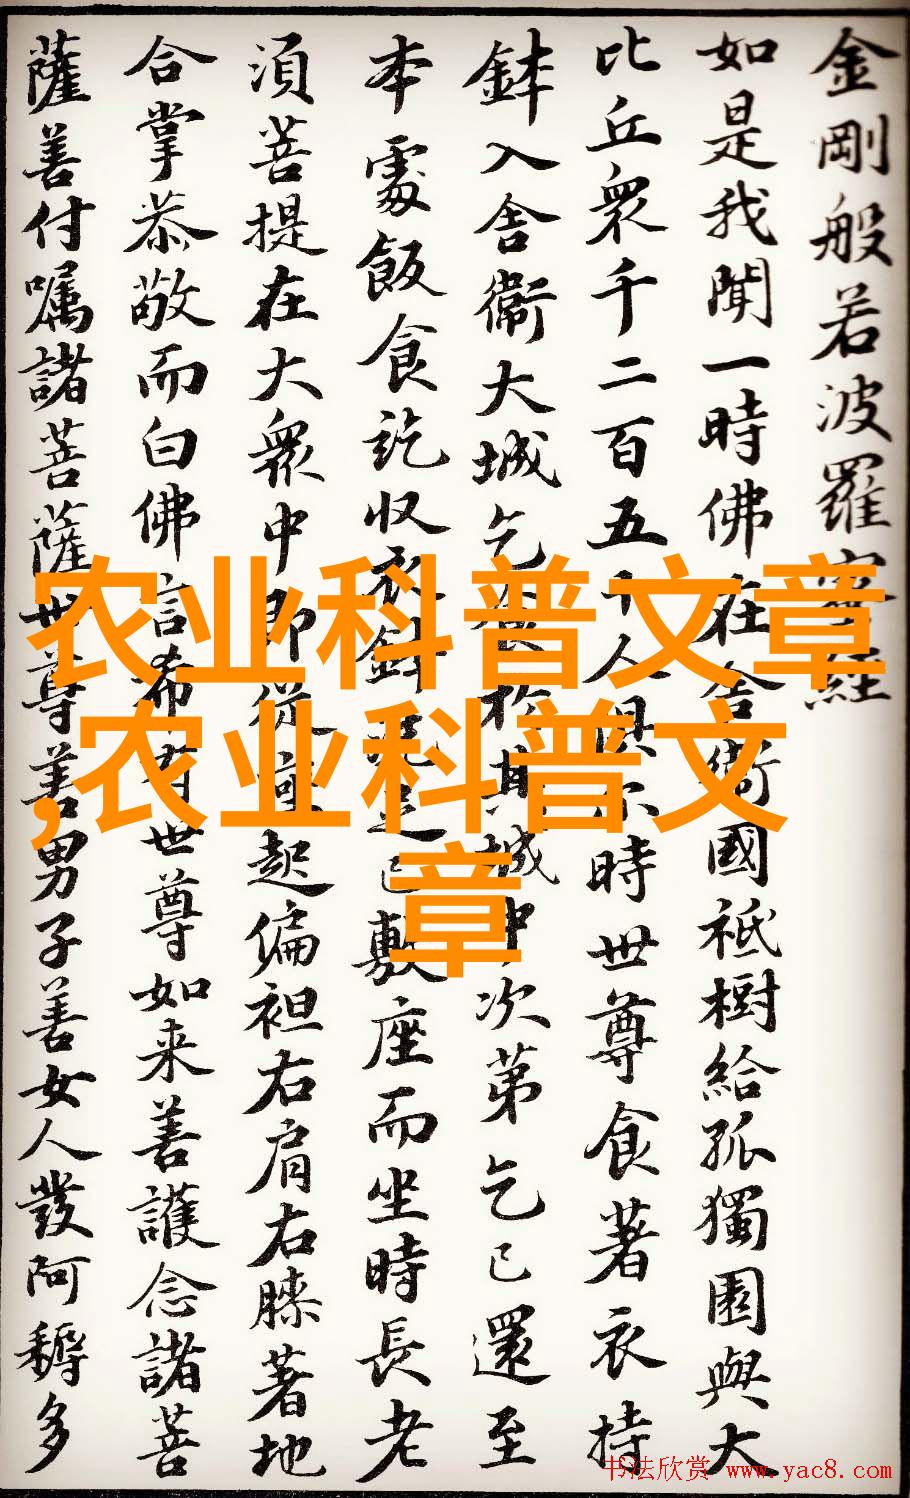 金剛般若波羅蜜經
如是我聞一時佛在舍衛國祇樹給孤獨園與大
比丘衆千二百五十人俱尒時世尊食著衣持
鉢入舍衛大城乞食於其城中次第乞已還至
本處飯食訖收衣鉢洗足已敷座而坐時長老
須菩提在大衆中即從座起偏袒右肩右膝著地
合掌恭敬而白佛言希有世尊如来善護念諸菩
薩善付囑諸菩薩世尊善男子善女人發阿耨多
农业科普文章
,农业科普文
章
书法欣赏 www.yac8.com